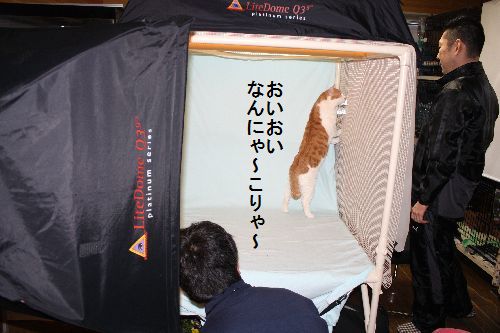 LiteDome Q3
platinum series
LiteDome Q3
platinum series
おいおい
なんにゃ～こりゃ～